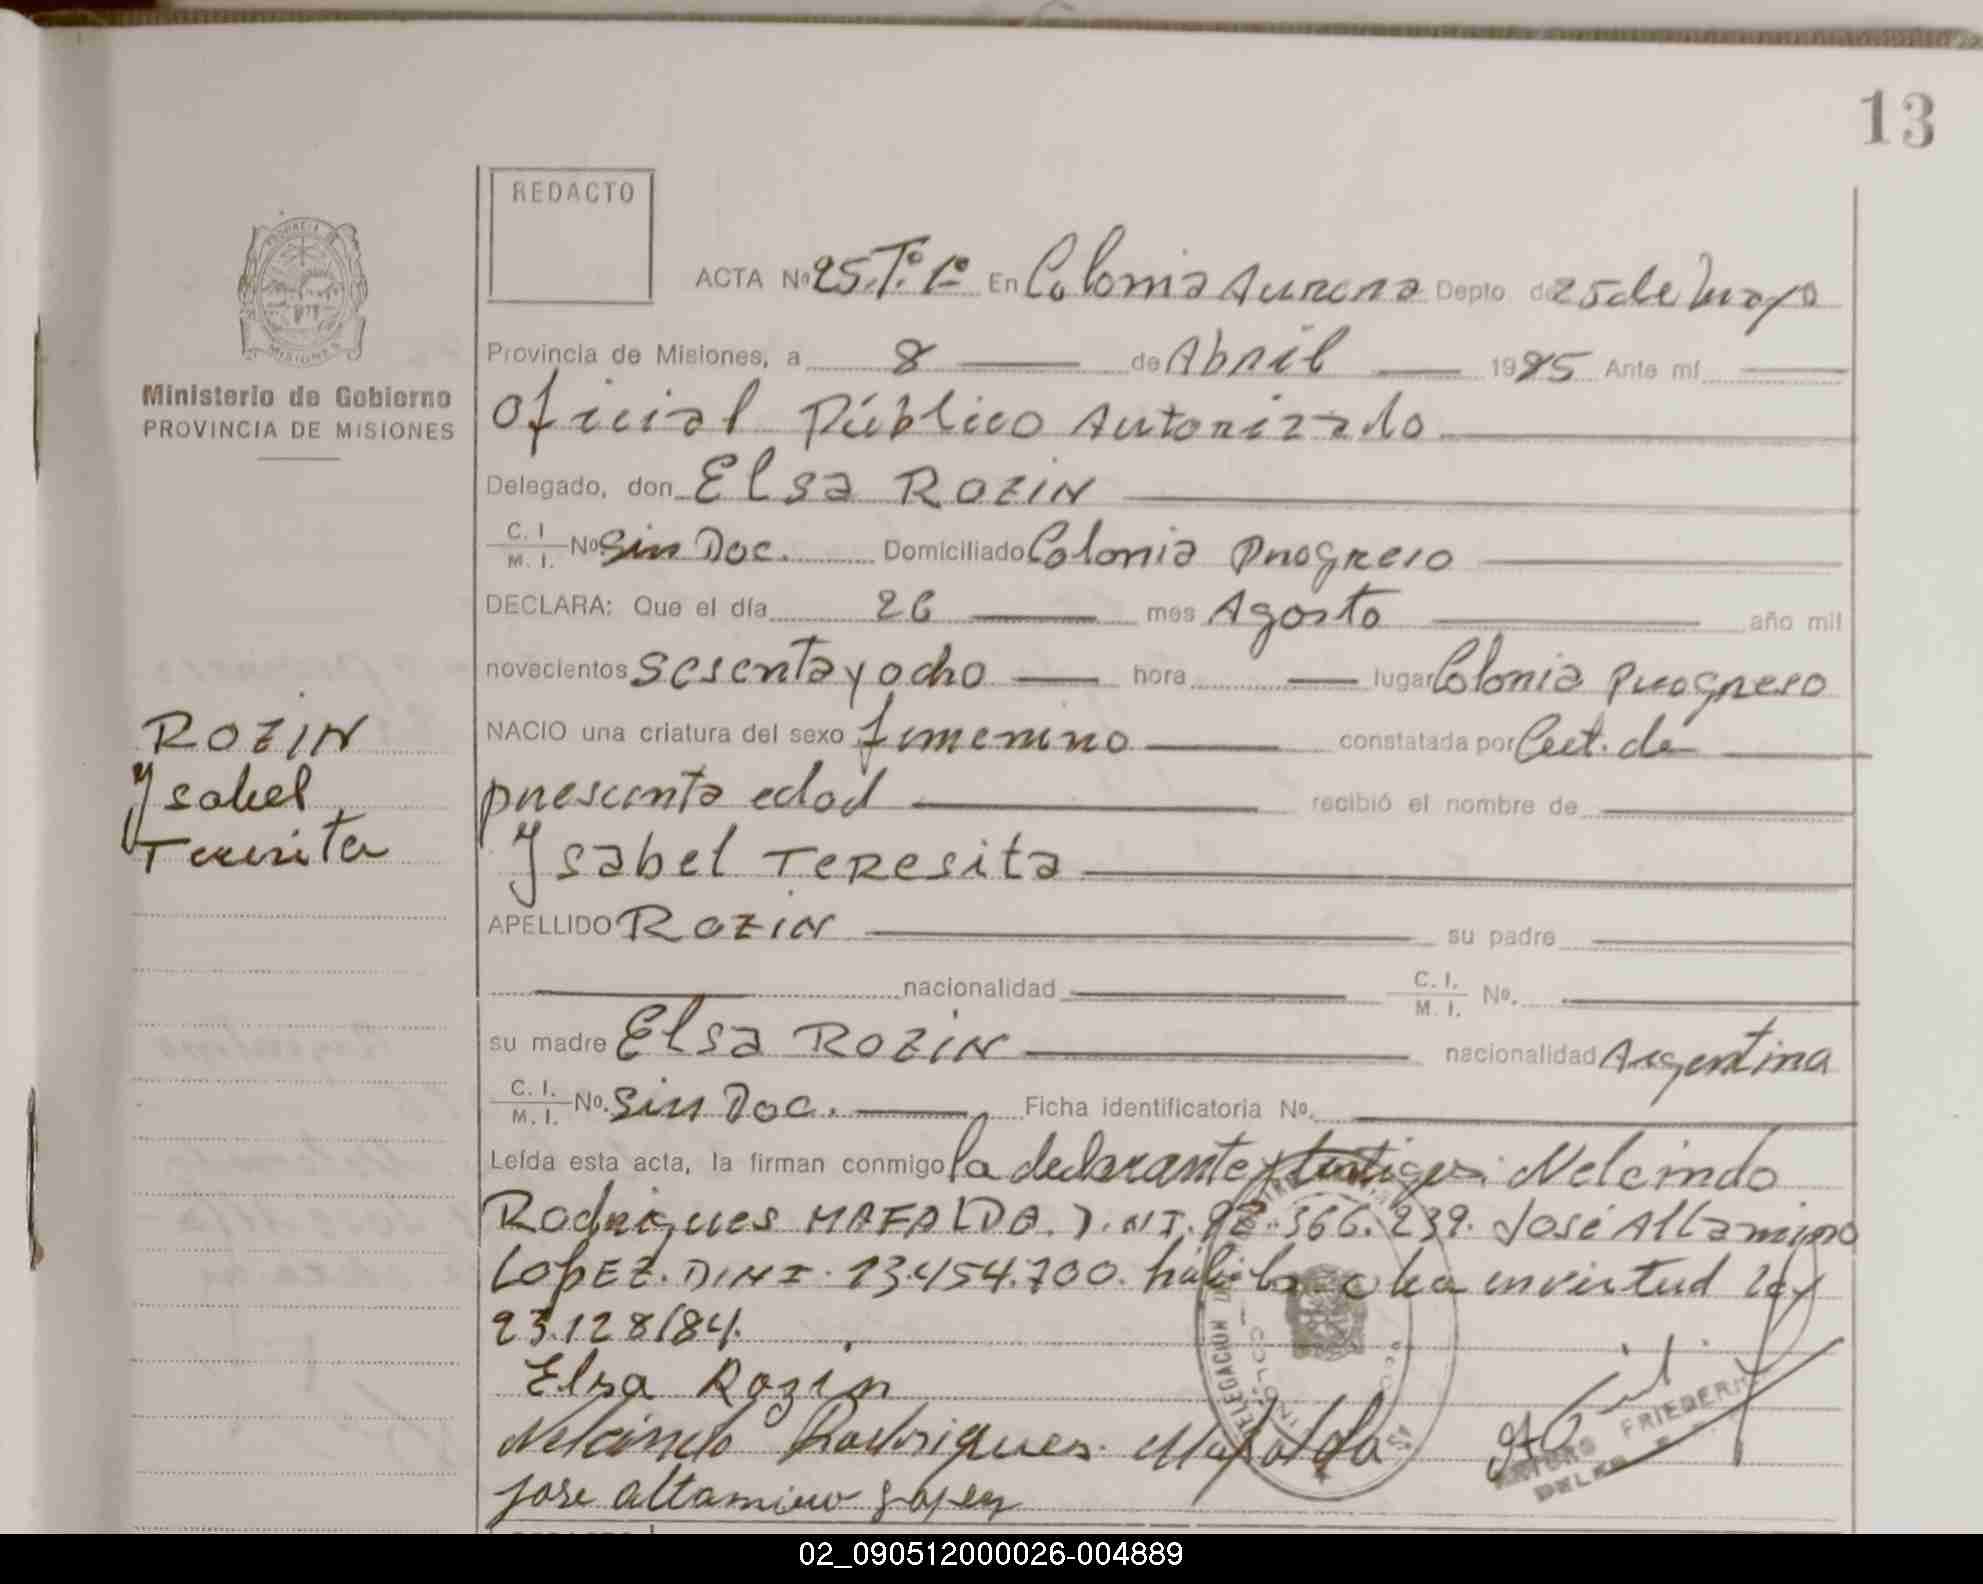 13
REDACTO
PROVINCIA DE
MISIONES
Ministerio de Gobierno
PROVINCIA DE MISIONES
ACTA Nº 25.Tº.1º En Colonia Aurora Depto de 25 de Mayo
Provincia de Misiones, a 8 de Abril 1985 Ante mí
Oficial Público Autorizado
Delegado, don Elsa ROZIN
C. I. M. I. Nº Sin Doc. Domiciliado Colonia Progreso
DECLARA: Que el día 26 mes Agosto año mil
novecientos sesenta y ocho hora lugar Colonia Progreso
NACIO una criatura del sexo femenino constatada por Cert. de
presunta edad recibió el nombre de
Ysabel Teresita
APELLIDO ROZIN su padre
nacionalidad C. I. M. I. Nº.
su madre Elsa ROZIN nacionalidad Argentina
C. I. M. I. Nº. Sin Doc. Ficha identificatoria Nº.
Leída esta acta, la firman conmigo la declarante y testigos: Nelcindo
Rodrigues MAFALDA. D.N.I. 92.366.239. José Altamiro
LOPEZ. D.N.I. 13.454.700. en virtud ley
23.128/84.
ROZIN
Ysabel
Teresita
Elsa Rozin
Nelcindo Rodrigues Mafalda
Jose altamiro Lopez
DELEGACION
FRIEDER
02_090512000026-004889